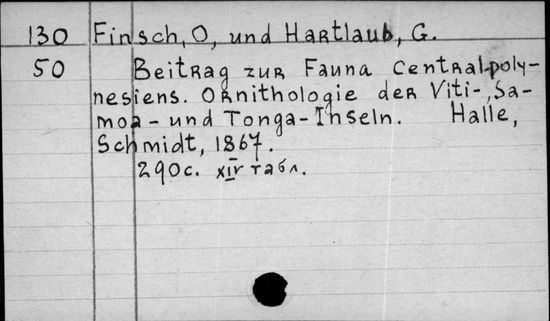 130 Finsch, O, und Hartlaub, G.
50 Beitrag zur Fauna Centralpoly-
nesiens. Ornithologie der Viti-, Sa-
moa- und Tonga-Inseln. Halle,
Schmidt, 1867.
290c. XIV табл.